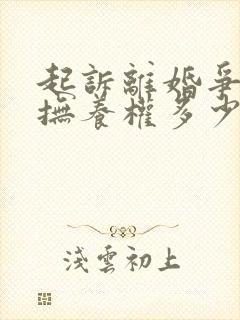 起訴離婚爭
撫養權多少
淺雲初上